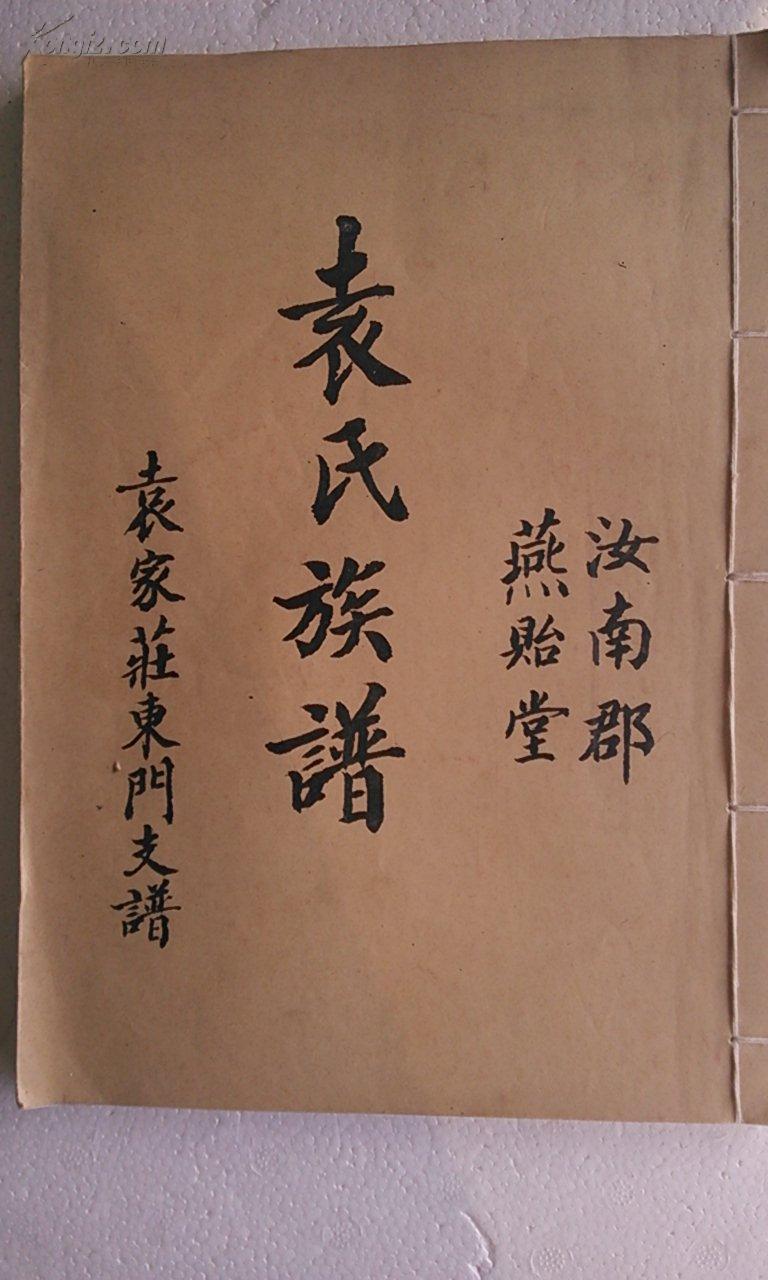 汝南郡
燕貽堂
袁氏族譜
袁家莊東門支譜